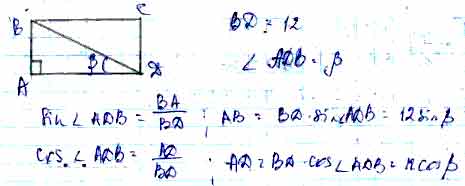 B C
BD = 12
∠ ADB = β
A β D
sin ∠ ADB = BA/BD ; AB = BD · sin∠ADB = 12 sin β
cos. ∠ ADB = AD/BD ; AD = BD · cos ∠ ADB = 12 cos β